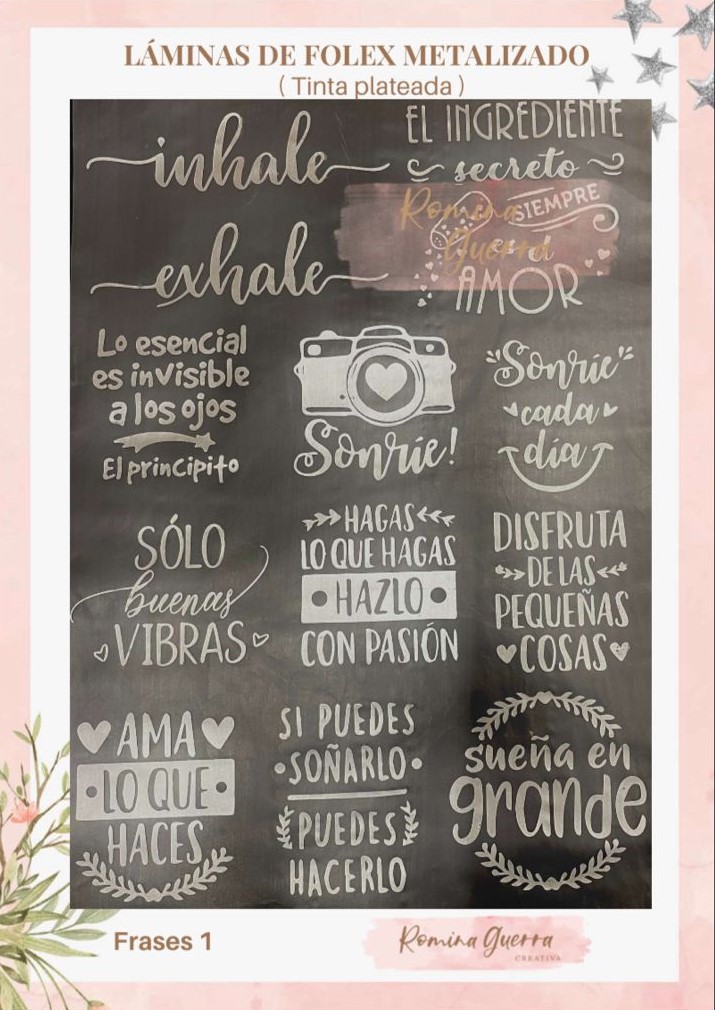 LÁMINAS DE FOLEX METALIZADO
( Tinta plateada )
inhale
exhale
EL INGREDIENTE
secreto
SIEMPRE
es el
AMOR
Romina
Guerra
Lo esencial
es invisible
a los ojos
El principito
Sonríe!
Sonríe
cada
día
SÓLO
buenas
VIBRAS
HAGAS
LO QUE HAGAS
HAZLO
CON PASIÓN
DISFRUTA
DE LAS
PEQUEÑAS
COSAS
AMA
LO QUE
HACES
SI PUEDES
SOÑARLO
PUEDES
HACERLO
sueña en
grande
Frases 1
Romina Guerra
CREATIVA